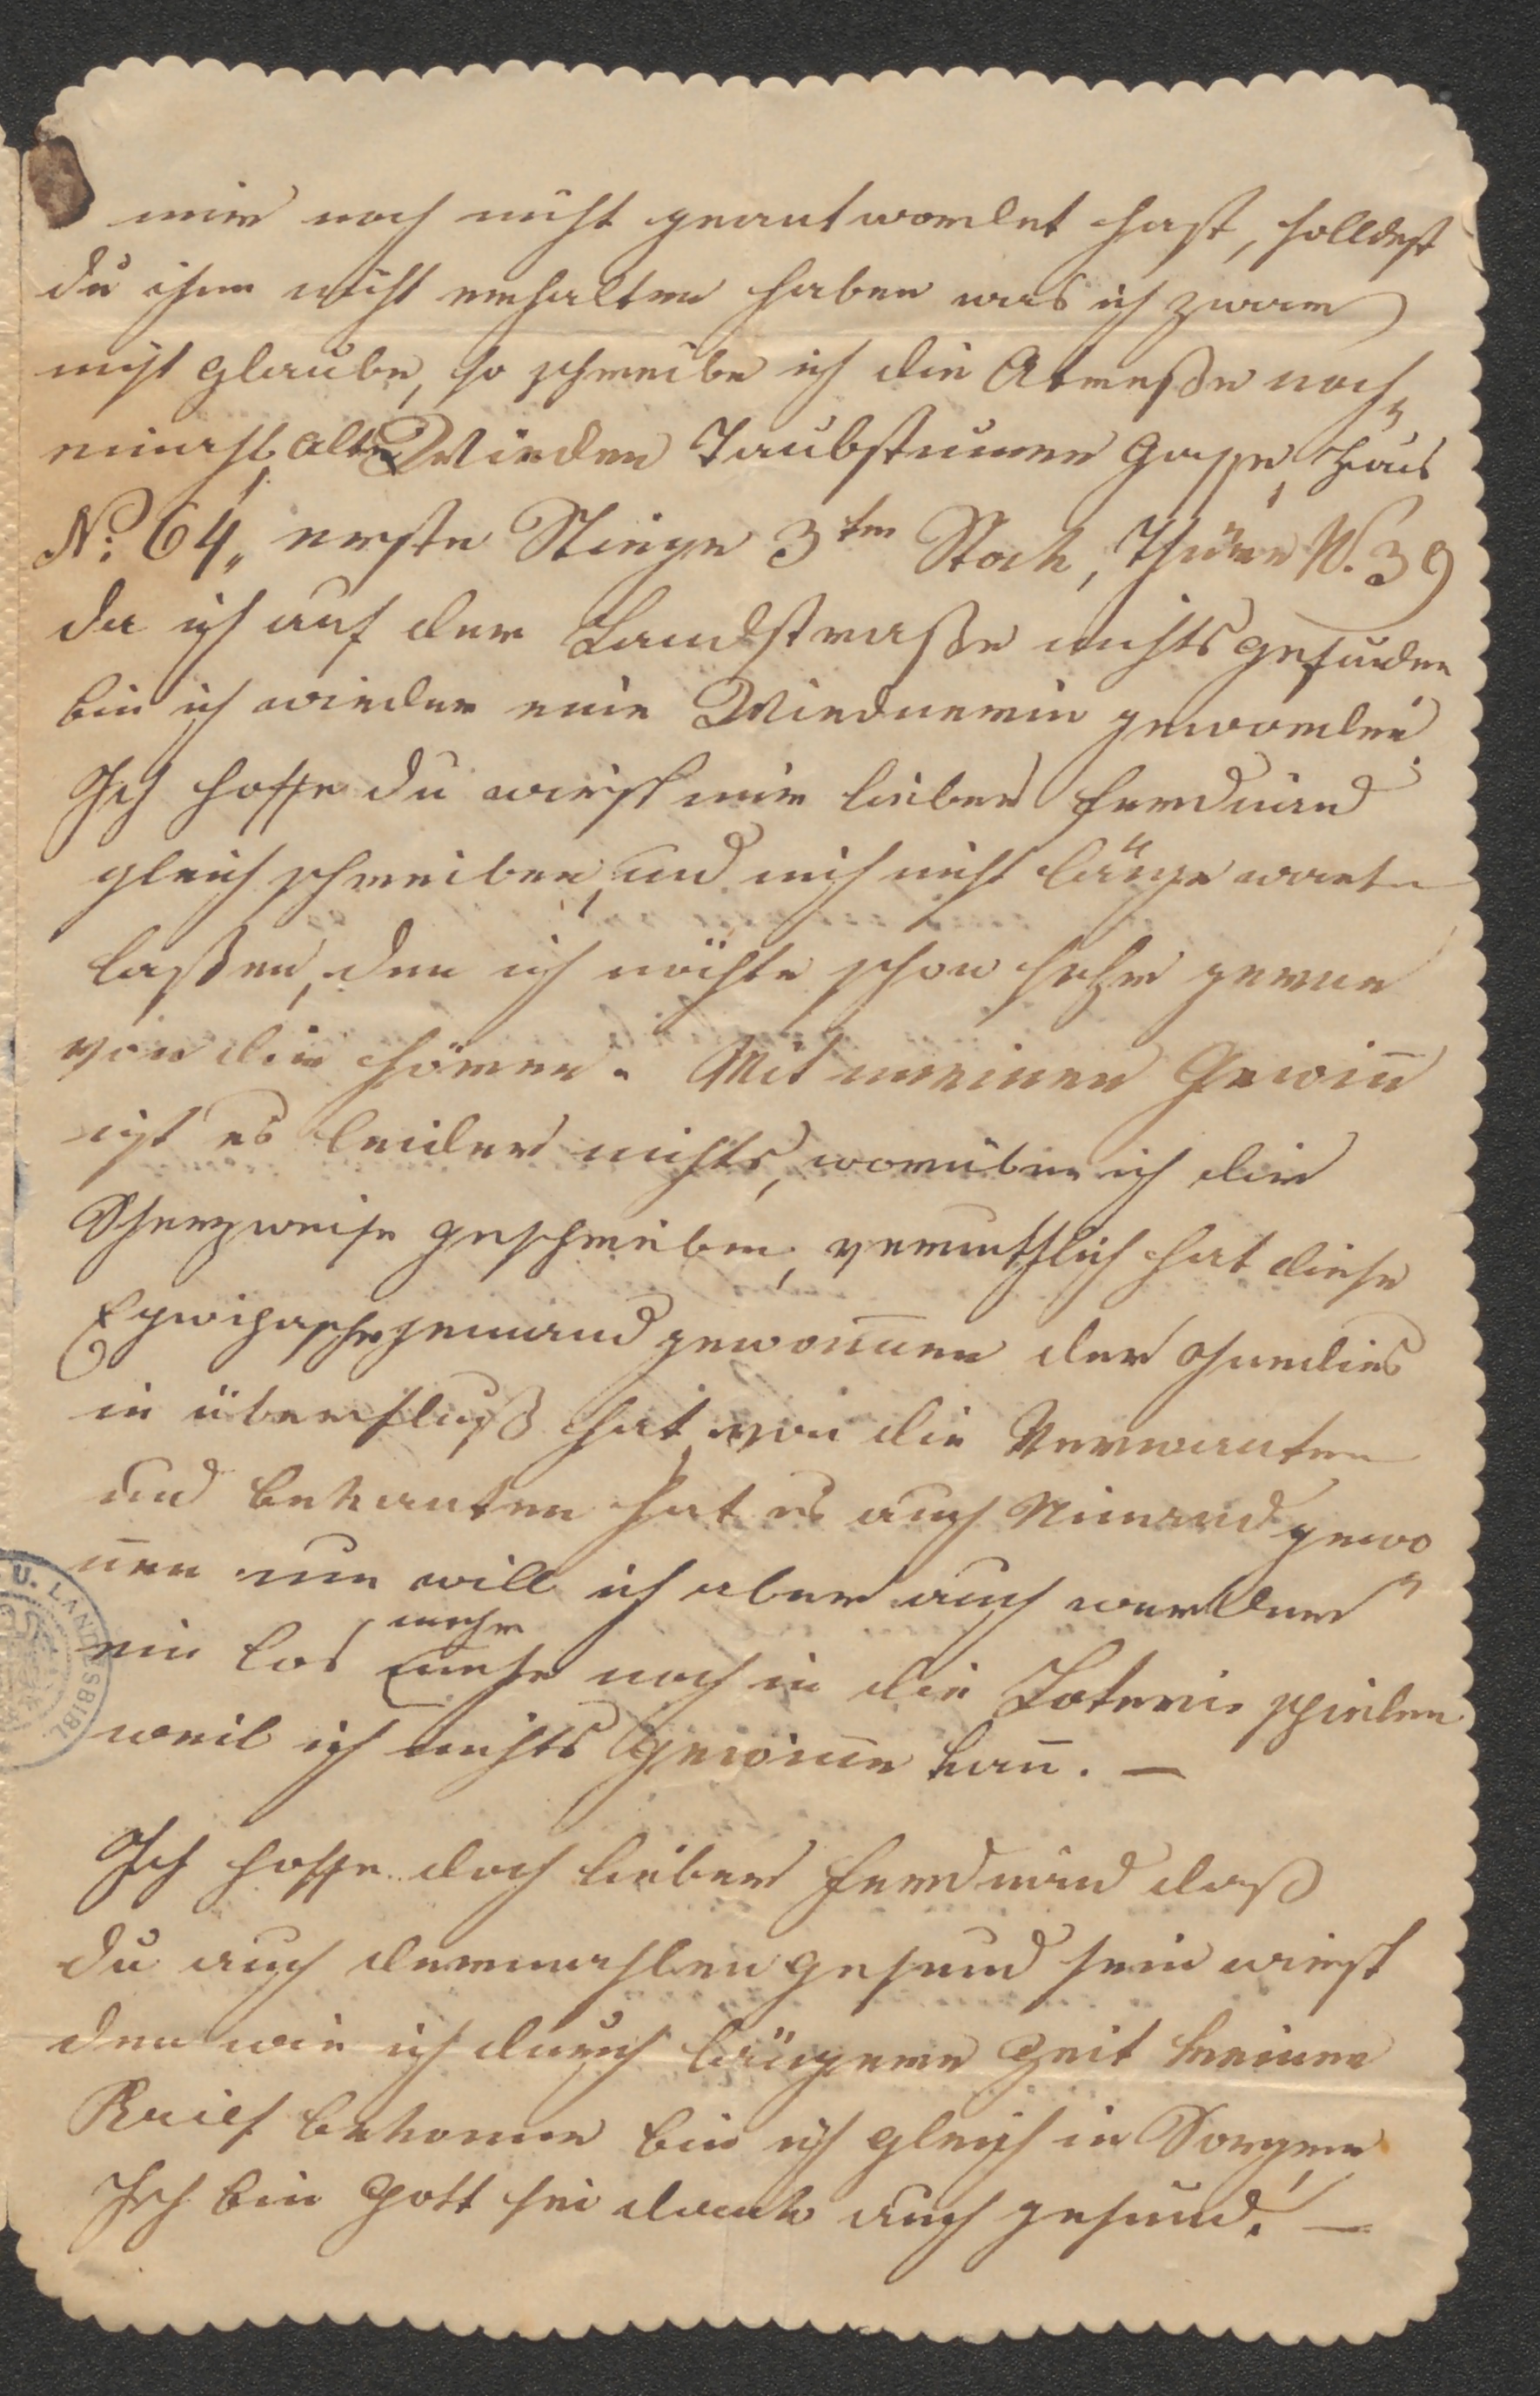 mir noch nicht geantwordet hast, solldest
du ihm nicht erhalten haben was ich zwar
nicht glaube, so schreibe ich die Atreße noch¬
einmahl, alte Wieden Taubstumen Gasse, Haus
No: 64,, erste Stiege 3ten Stock, Thüre N. 39
da ich auf der Landstraße nichts gefunden
bin ich wieder eine Wiednerin geworden.
Ich hoffe du wirst mir lieber Ferdinand
gleich schreiben, und mich nicht länge warten
laßen, den ich möchte schon sehr gerne
von dir hören. Mit meinen Gewin̅
ist es leider nichts, worüber ich dir
Scherzweise geschrieben, vermuthlich hat diese
Eqwipasche jemand gewon̅nen der ohnedies
in überfluß hat, von die Verwanten
und bekanten hat es auch Niemand gewo
n̅en nun will ich aber auch werder
ein los mehr noch in die Loterie spielen
weil ich nichts gewin̅e kan̅. —
Ich hoffe doch lieber Ferdinand daß
du auch dermahlen gesund sein wirst
den wie ich durch längere Zeit keinen
Brief bekome bin ich gleich in Sorgen
Ich bin Gott sei dank auch gesund! —
U. LANDESBIBL.